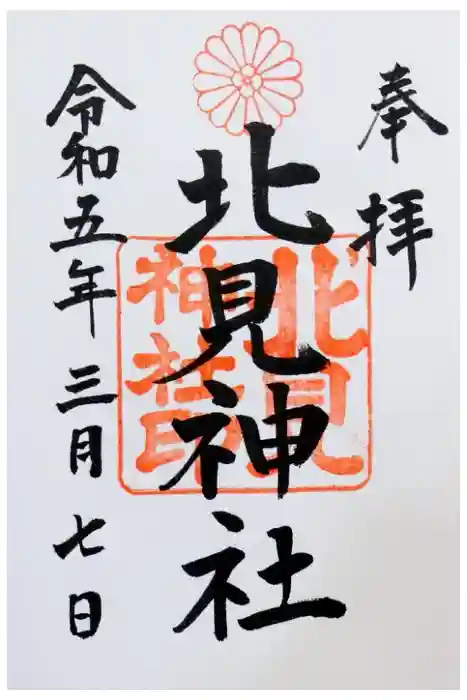 奉拝
北見神社
北見
神社印
令和五年三月七日